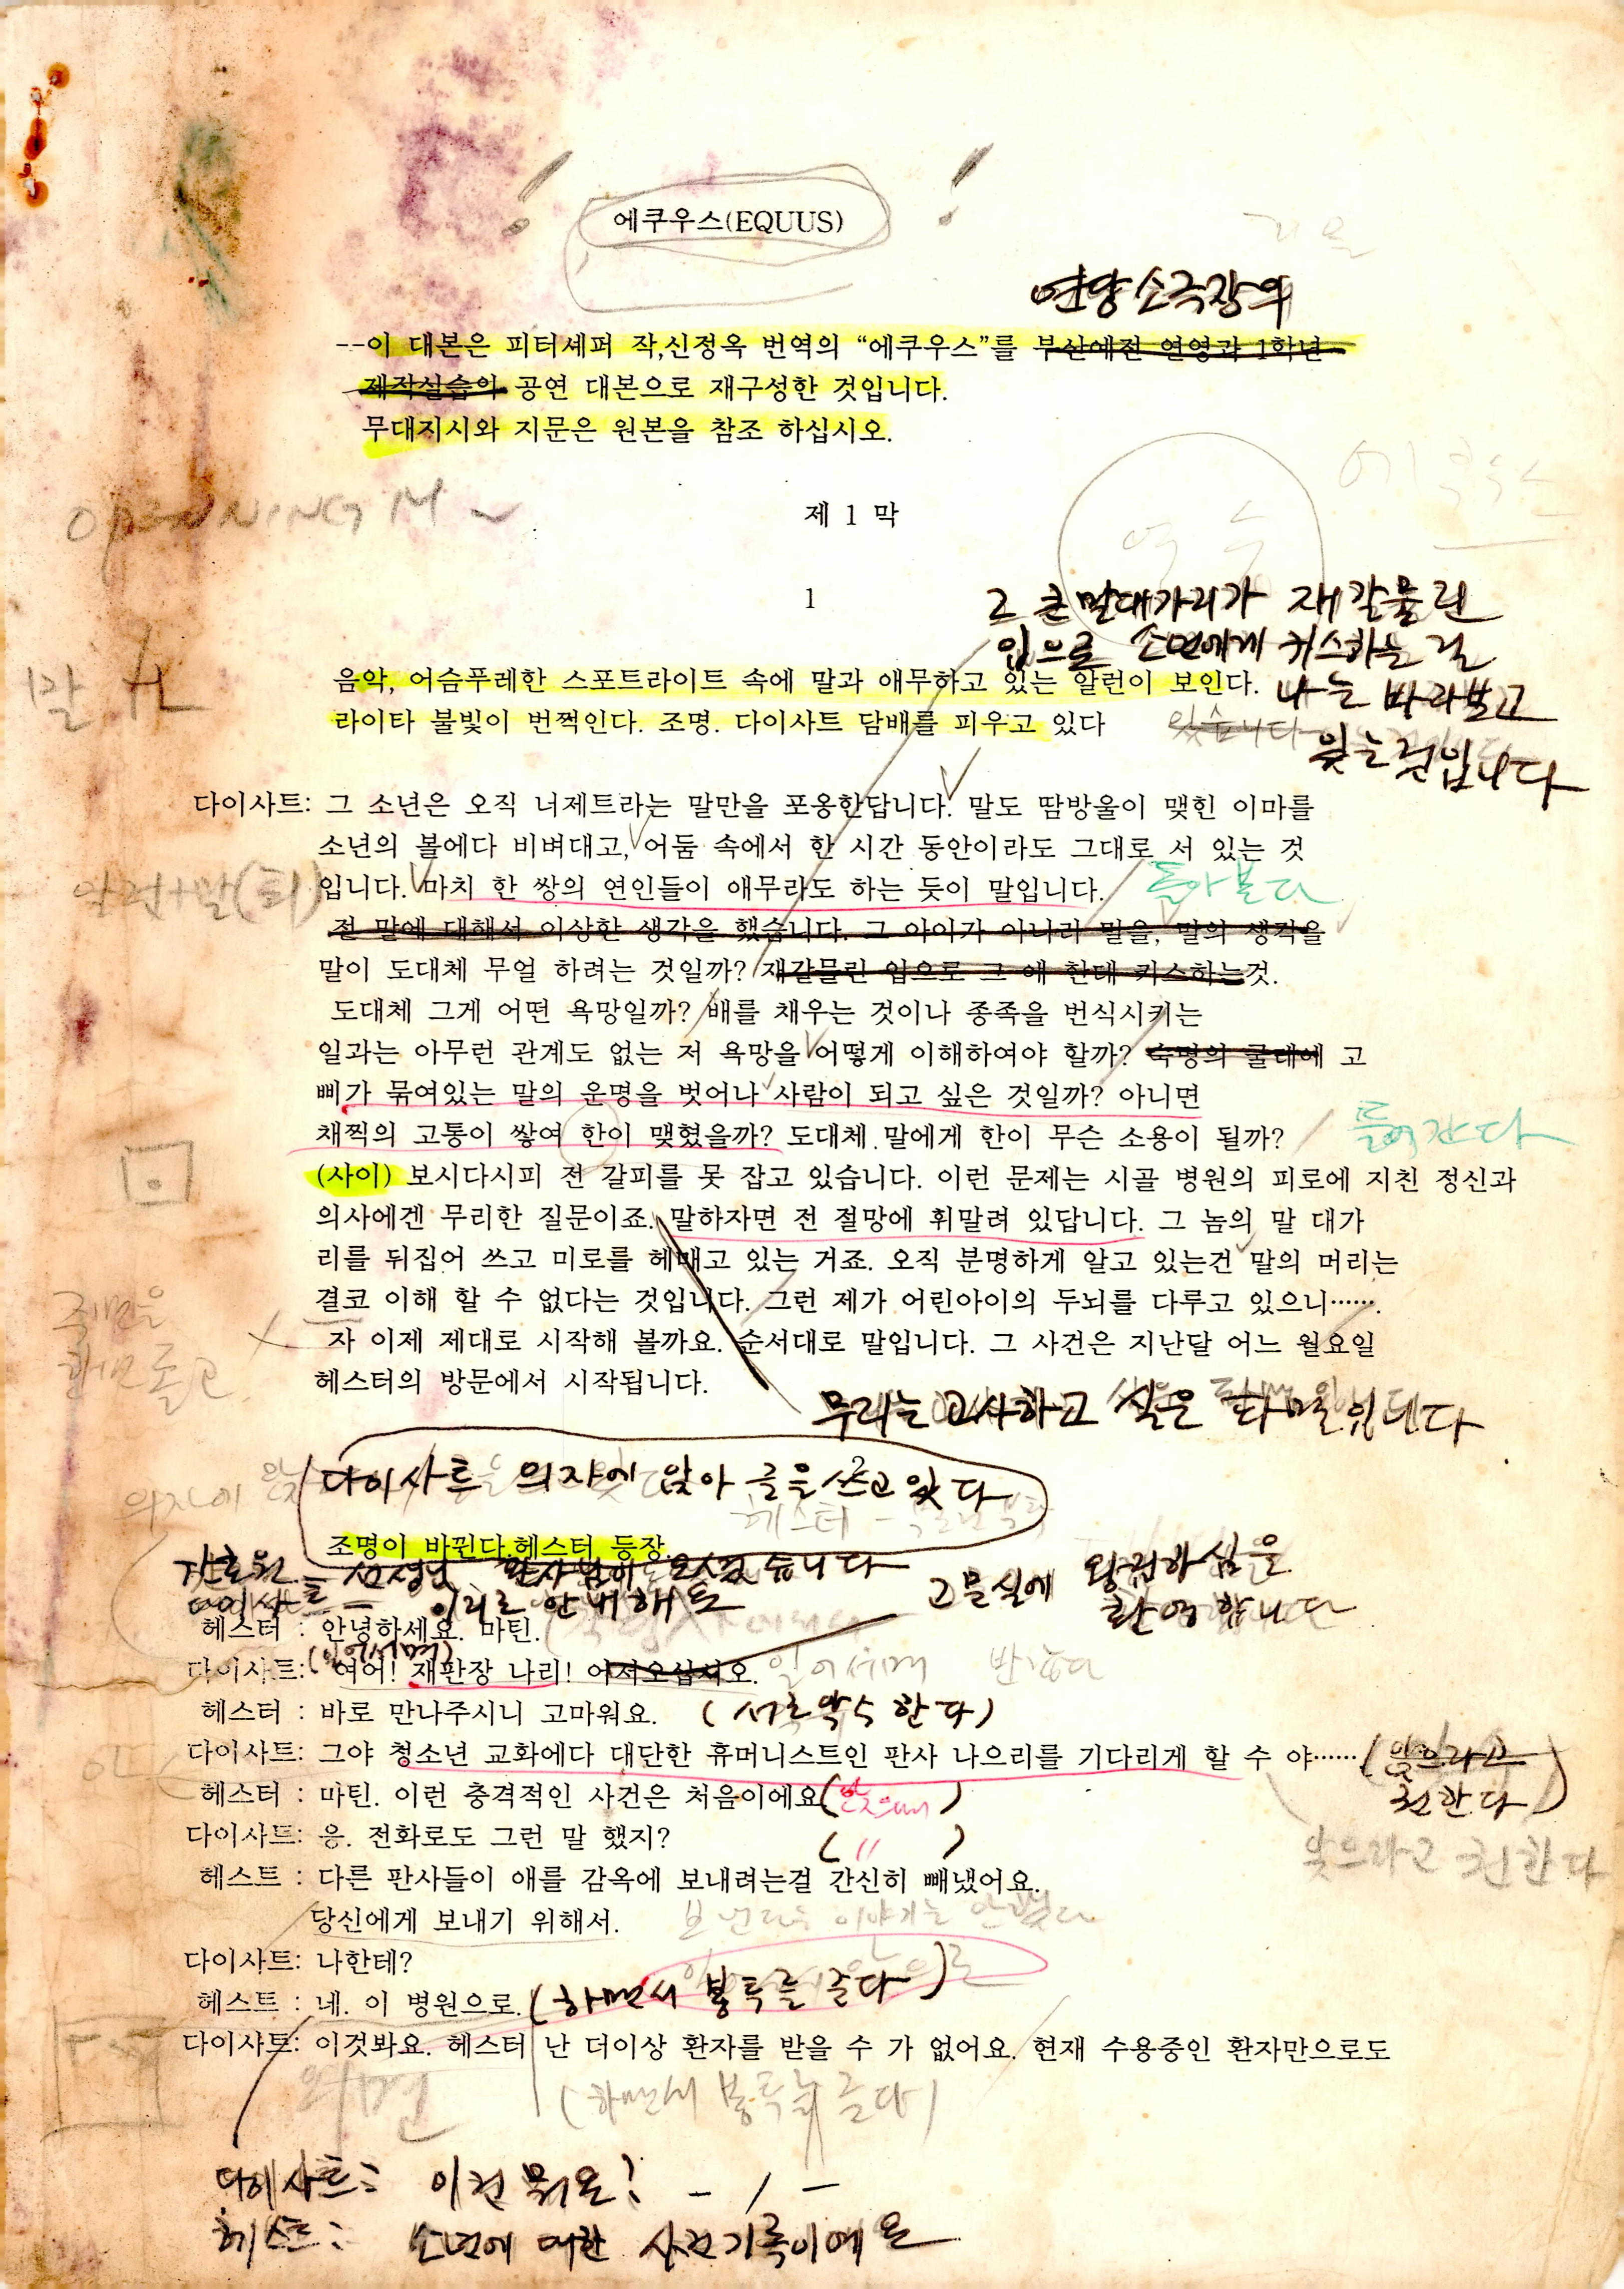 에쿠우스(EQUUS)
연양소극장의
--이 대본은 피터셰퍼 작,신정옥 번역의 “에쿠우스”를 부산예전 연영과 1학년
제작실습의 공연 대본으로 재구성한 것입니다.
무대지시와 지문은 원본을 참조 하십시오.
에쿠우스
OPENNING M
제 1 막
1
그 큰 말대가리가 재갈물린
입으로 소년에게 키스하는 걸
나는 바라보고
있는 것입니다
음악, 어슴푸레한 스포트라이트 속에 말과 애무하고 있는 알런이 보인다.
라이타 불빛이 번쩍인다. 조명. 다이사트 담배를 피우고 있다
있습니다
다이사트: 그 소년은 오직 너제트라는 말만을 포옹한답니다. 말도 땀방울이 맺힌 이마를
소년의 볼에다 비벼대고, 어둠 속에서 한 시간 동안이라도 그대로 서 있는 것
입니다. 마치 한 쌍의 연인들이 애무라도 하는 듯이 말입니다. 돌아본다
알런+말(퇴)
전 말에 대해서 이상한 생각을 했습니다. 그 아이가 아니라 말을, 말의 생각을
말이 도대체 무얼 하려는 것일까? 재갈물린 입으로 그 애 한테 키스하는것.
도대체 그게 어떤 욕망일까? 배를 채우는 것이나 종족을 번식시키는
일과는 아무런 관계도 없는 저 욕망을 어떻게 이해하여야 할까? 숙명의 굴레에 고
삐가 묶여있는 말의 운명을 벗어나 사람이 되고 싶은 것일까? 아니면
채찍의 고통이 쌓여 한이 맺혔을까? 도대체 말에게 한이 무슨 소용이 될까? 들어간다
(사이) 보시다시피 전 갈피를 못 잡고 있습니다. 이런 문제는 시골 병원의 피로에 지친 정신과
의사에겐 무리한 질문이죠. 말하자면 전 절망에 휘말려 있답니다. 그 놈의 말 대가
리를 뒤집어 쓰고 미로를 헤매고 있는 거죠. 오직 분명하게 알고 있는건 말의 머리는
결코 이해 할 수 없다는 것입니다. 그런 제가 어린아이의 두뇌를 다루고 있으니…….
자 이제 제대로 시작해 볼까요. 순서대로 말입니다. 그 사건은 지난달 어느 월요일
헤스터의 방문에서 시작됩니다.
무리는 고사하고 싶은 타입입니다
다이사트 의자에 앉아 글을 쓰고 있다
의자에
조명이 바뀐다.헤스터 등장.
간호원 선생님 판사님이 오셨습니다
다이사트 - 이리로 안내해요
고물실에 왕림하심을
환영합니다
헤스터 : 안녕하세요. 마틴.
(일어서며)
다이사트: 여어! 재판장 나리! 어서오십시오. 일어서며 반갑다
헤스터 : 바로 만나주시니 고마워요. (서로 악수 한다)
다이사트: 그야 청소년 교화에다 대단한 휴머니스트인 판사 나으리를 기다리게 할 수 야…… (앉으라고
권한다)
헤스터 : 마틴. 이런 충격적인 사건은 처음이에요(앉으며)
다이사트: 응. 전화로도 그런 말 했지? ( 〃 )
앉으라고 권한다
헤스트 : 다른 판사들이 애를 감옥에 보내려는걸 간신히 빼냈어요.
당신에게 보내기 위해서.
다이사트: 나한테?
헤스트 : 네. 이 병원으로. (하면서 봉투를 준다)
다이사트: 이것봐요. 헤스터 난 더이상 환자를 받을 수 가 없어요. 현재 수용중인 환자만으로도
(하면서 봉투를 준다)
다이사트: 이건 뭐요! - / -
헤스트: 소년에 대한 사건기록이에요